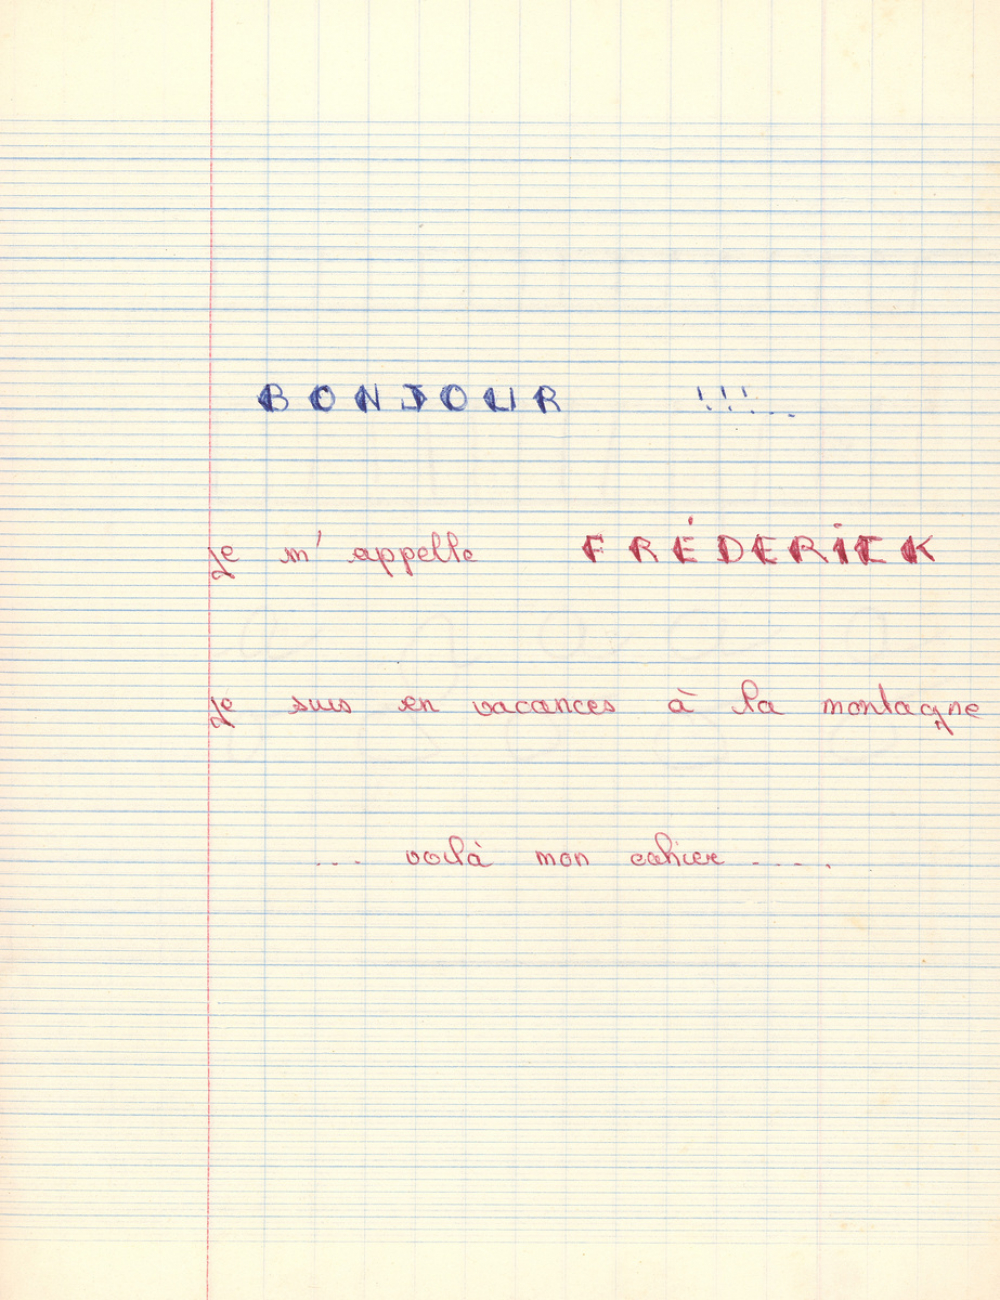 BONJOUR !!!...
je m'appelle FRÉDERICK
je suis en vacances à la montagne
... voilà mon cahier ....